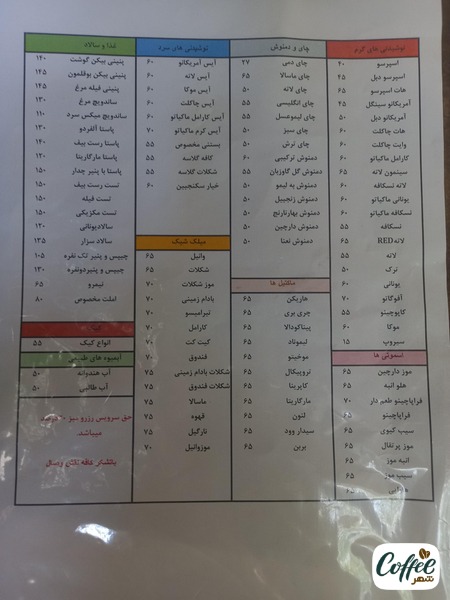 نوشیدنی های گرم
اسپرسو ۴۰
اسپرسو دبل ۴۵
هات اسپرسو ۶۵
آمریکانو سینگل ۴۵
آمریکانو دبل ۵۰
هات چاکلت ۶۰
وایت چاکلت ۶۰
کارامل ماکیاتو ۶۰
سینمون لاته ۶۵
لاته نسکافه ۶۰
یونانی ماکیاتو ۶۰
نسکافه ماکیاتو ۶۰
نسکافه ۵۵
لاته RED ۶۵
لاته ۵۵
ترک ۵۰
یونانی ۶۰
آفوگاتو ۷۰
کاپوچینو ۵۵
موکا ۶۰
سیروپ ۱۵
اسموتی ها
موز دارچین ۶۵
هلو انبه ۶۵
فراپاچینو طعم دار ۷۰
فراپاچینو ۶۵
سیب کیوی ۶۵
موز پرتقال ۶۵
انبه موز ۶۵
سیب موز ۶۵
چای و دمنوش
چای دمی ۲۷
چای ماسالا ۶۵
چای لاته ۵۰
چای انگلیسی ۵۵
چای لیموعسل ۵۵
چای سبز ۵۰
چای ترش ۵۰
دمنوش ترکیبی ۶۰
دمنوش گل گاوزبان ۵۵
دمنوش به لیمو ۵۰
دمنوش زنجبیل ۵۰
دمنوش بهارنارنج ۵۰
دمنوش دارچین ۵۰
دمنوش نعنا ۵۰
ماکتیل ها
هاریکن ۶۵
چری بری ۶۵
پیناکولادا ۶۵
لیموناد ۶۵
موخیتو ۶۵
تروپیکال ۶۵
کاپرینا ۶۵
مارگاریتا ۶۵
لنون ۶۵
سیدار وود ۶۵
برین ۶۵
نوشیدنی های سرد
آیس آمریکانو ۶۰
آیس لاته ۶۰
آیس موکا ۶۰
آیس چاکلت ۶۰
آیس کارامل ماکیاتو ۶۰
آیس کرم ماکیاتو ۷۰
بستنی مخصوص ۵۵
کافه گلاسه ۵۵
شکلات گلاسه ۵۵
خیار سکنجبین ۶۰
میلک شیک
وانیل ۶۵
شکلات ۶۵
موز شکلات ۷۰
بادام زمینی ۷۰
تیرامیسو ۷۰
کارامل ۷۰
کیت کت ۷۰
فندوق ۷۰
شکلات بادام زمینی ۷۵
شکلات فندوق ۷۵
ماسالا ۷۵
قهوه ۷۵
نارگیل ۷۵
موزوانیل ۷۰
غذا و سالاد
پنینی بیکن گوشت ۱۴۰
پنینی بیکن بوقلمون ۱۴۵
پنینی فیله مرغ ۱۴۵
ساندویچ مرغ ۱۳۰
ساندویچ میکس سرد ۱۱۰
پاستا آلفردو ۱۳۰
پاستا رست بیف ۱۴۰
پاستا مارگاریتا ۱۲۰
پاستا با پنیر چدار ۱۵۰
تست رست بیف ۱۵۰
تست فیله ۱۵۰
تست مکزیکی ۱۵۰
سالادیونانی ۱۲۰
سالاد سزار ۱۳۵
چیپس و پنیر تک نفره ۱۰۵
چیپس و پنیردونفره ۱۳۰
نیمرو ۶۵
املت مخصوص ۸۰
کیک
انواع کیک ۵۵
آبمیوه های طبیعی
آب هندوانه ۵۰
آب طالبی ۵۰
حق سرویس رزرو میز
میباشد.
باتشکر کافه
Coffee
شهر